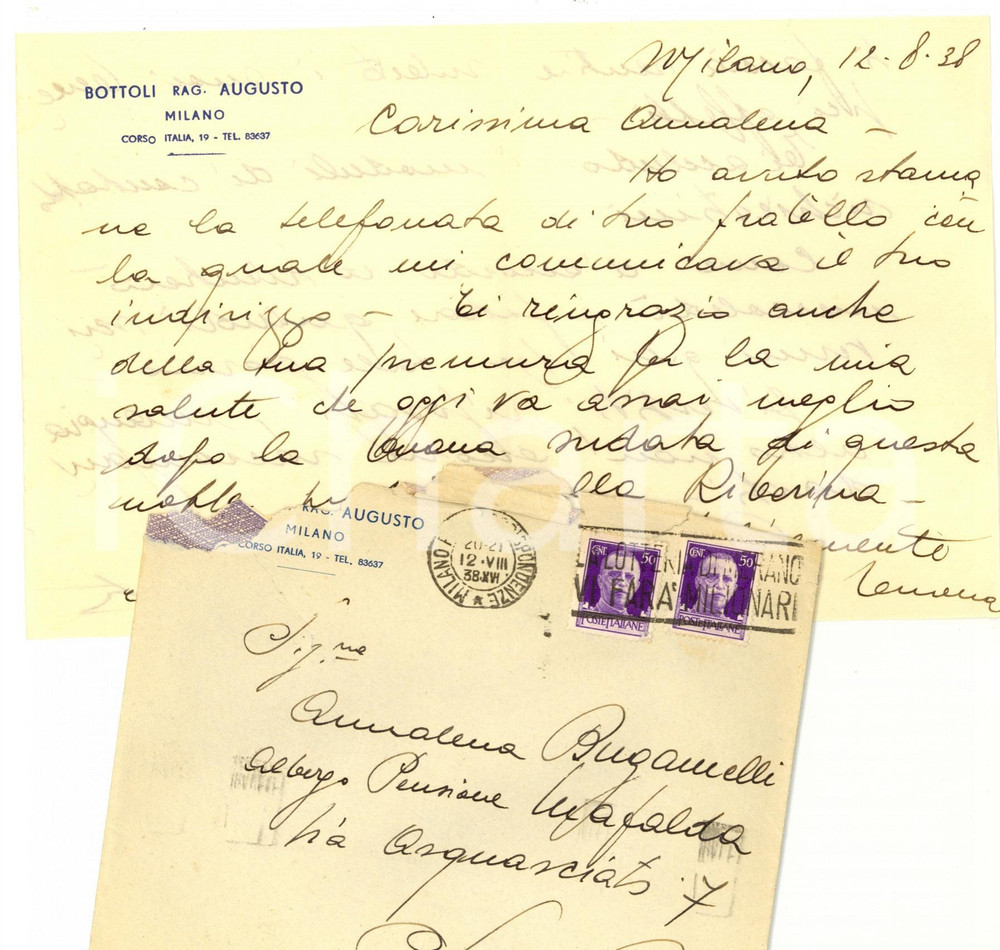 Milano, 12-8-38
BOTTOLI RAG. AUGUSTO
MILANO
CORSO ITALIA, 19 - TEL. 83637
Carissima Annalena -
Ho avuto stama
ne la telefonata di tuo fratello con
la quale mi comunicava il tuo
indirizzo - Ti ringrazio anche
della tua premura per la mia
salute che oggi va assai meglio
dopo la buona sudata di questa
notte lla Riberina -
mente
RAG. AUGUSTO
MILANO
CORSO ITALIA, 19 - TEL. 83637
MILANO CORRISPONDENZE
20-21
12·VIII
38·XVI
CENT. 50
POSTE ITALIANE
CENT. 50
POSTE ITALIANE
LA LOTTERIA DI MERANO
VI FARA' MILIONARI
Sig.na
Annalena Buganelli
Albergo Pensione Mafalda
Via Acquasciati 7